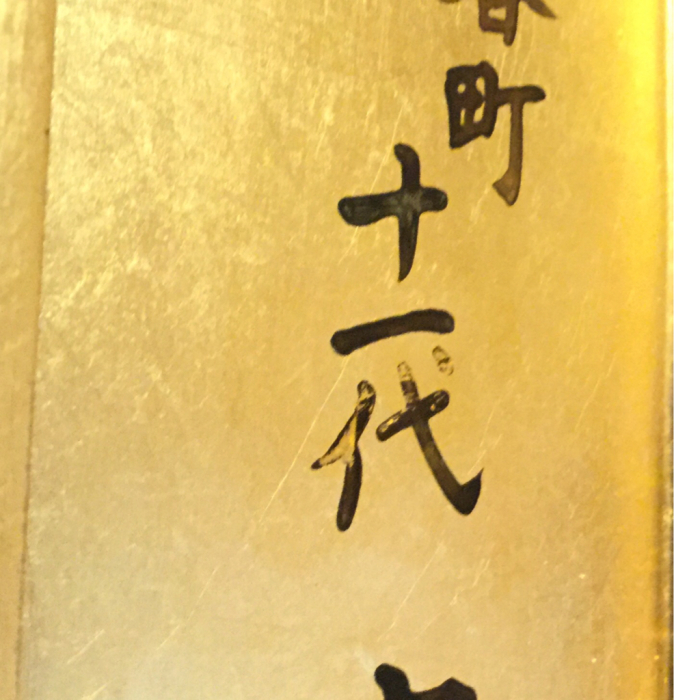 町
十一代